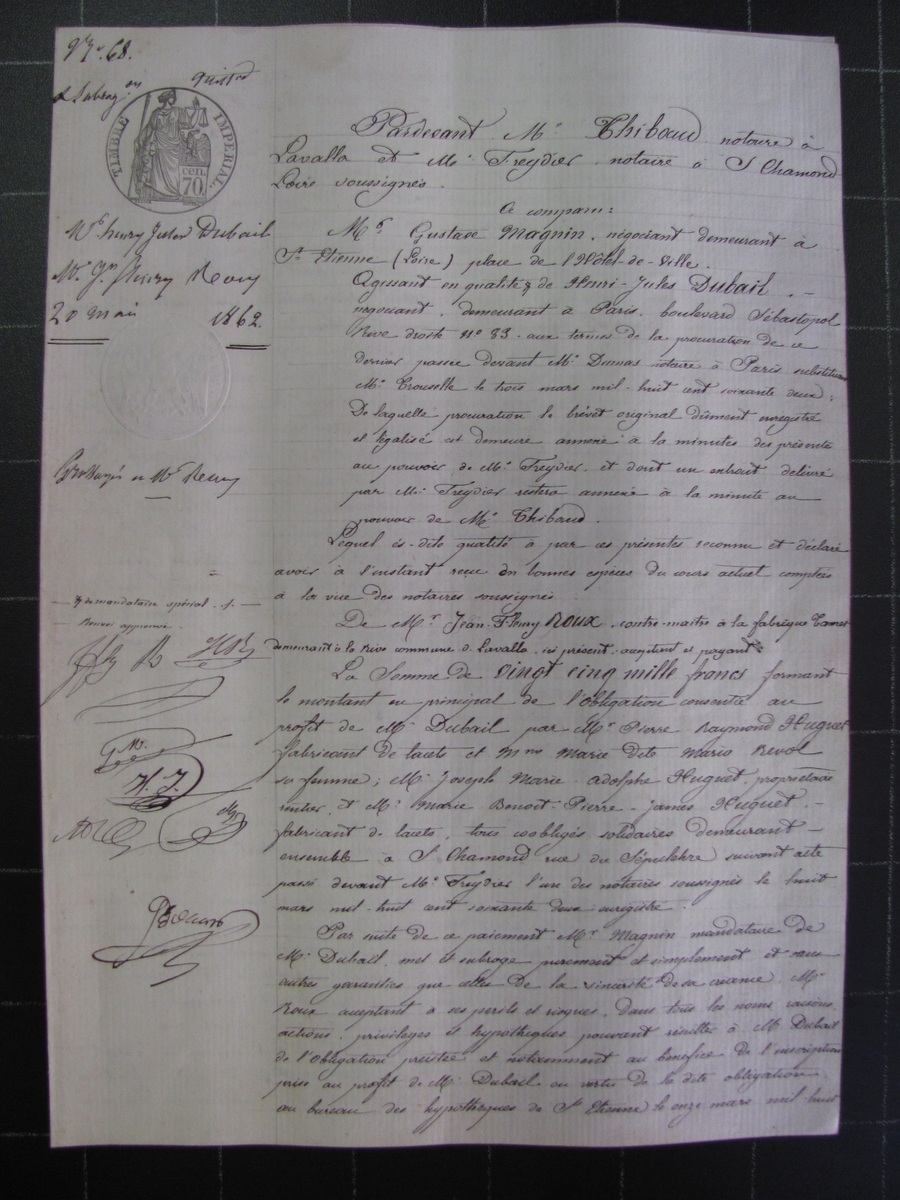 N° 68.
& Subrog on
quittce
TIMBRE IMPERIAL.
70 cen.
Mr henry Jules Dubail
Mr Jn fleury Roux
20 mai 1862.
Mr Roux
& de mandataire spécial
Renvoi approuvé
G M.
H. J.
Pardevant Me Thibaud notaire à
Lavalla et Me Freydier notaire à St Chamond
Loire soussignés.
A comparu:
Mr Gustave Magnin, négociant demeurant à
St Etienne (Loire) place de l'Hôtel-de-Ville.
Agissant en qualité & de Henri-Jules Dubail,
négociant, demeurant à Paris, boulevard Sébastopol
Rive droite n° 33. aux termes de la procuration de ce
dernier passée devant Me Dumas notaire à Paris substituant
Me Trouselle le trois mars mil-huit cent soixante deux;
De laquelle procuration le brévet original dûment enregistré
et légalisé est demeuré annexé à la minutes des présentes
au pouvoir de Me Freydier et dont un extrait délivré
par Me Freydier restera annexé à la minute au
pouvoir de Me Thibaud.
Lequel ès-dite qualité à par ces présentes reconnu et déclaré
avoir à l'instant reçu en bonnes espèces du cours actuel comptées
à la vue des notaires soussignés
De Mr Jean-Fleury Roux, contre-maitre à la fabrique
demeurant à la Rive commune de Lavalla, ici présent acceptant et payant
La Somme de vingt cinq mille francs formant
le montant en principal de l'Obligation consentie au
profit de Mr Dubail par Mr Pierre Raymond Huguet
fabricant de lacets et Mme Marie dite Maria Revol
sa femme; Mr Joseph Marie-Adolphe Huguet, propriétaire
rentier, et Mr Marie Benoit-Pierre-James Huguet,
fabricant de lacets, tous coobligés solidaires demeurant
ensemble à St Chamond rue du Sépulchre suivant acte
passé devant Me Freydier l'un des notaires soussignés le huit
mars mil-huit cent soixante deux enregistré.
Par suite de ce paiement Mr Magnin mandataire de
Mr Dubail, met et subroge purement et simplement et sans
autres garanties que celles de la sincérité de sa créance Mr
Roux acceptant à ses périls et risques, dans tous les noms raisons
actions, privilèges et hypothèques pouvant résulter à Mr Dubail
de l'Obligation précitée et notamment au bénéfice de l'inscription
prise au profit de Mr Dubail en vertu de la dite obligation
au bureau des hypothèques de St Etienne le onze mars mil huit